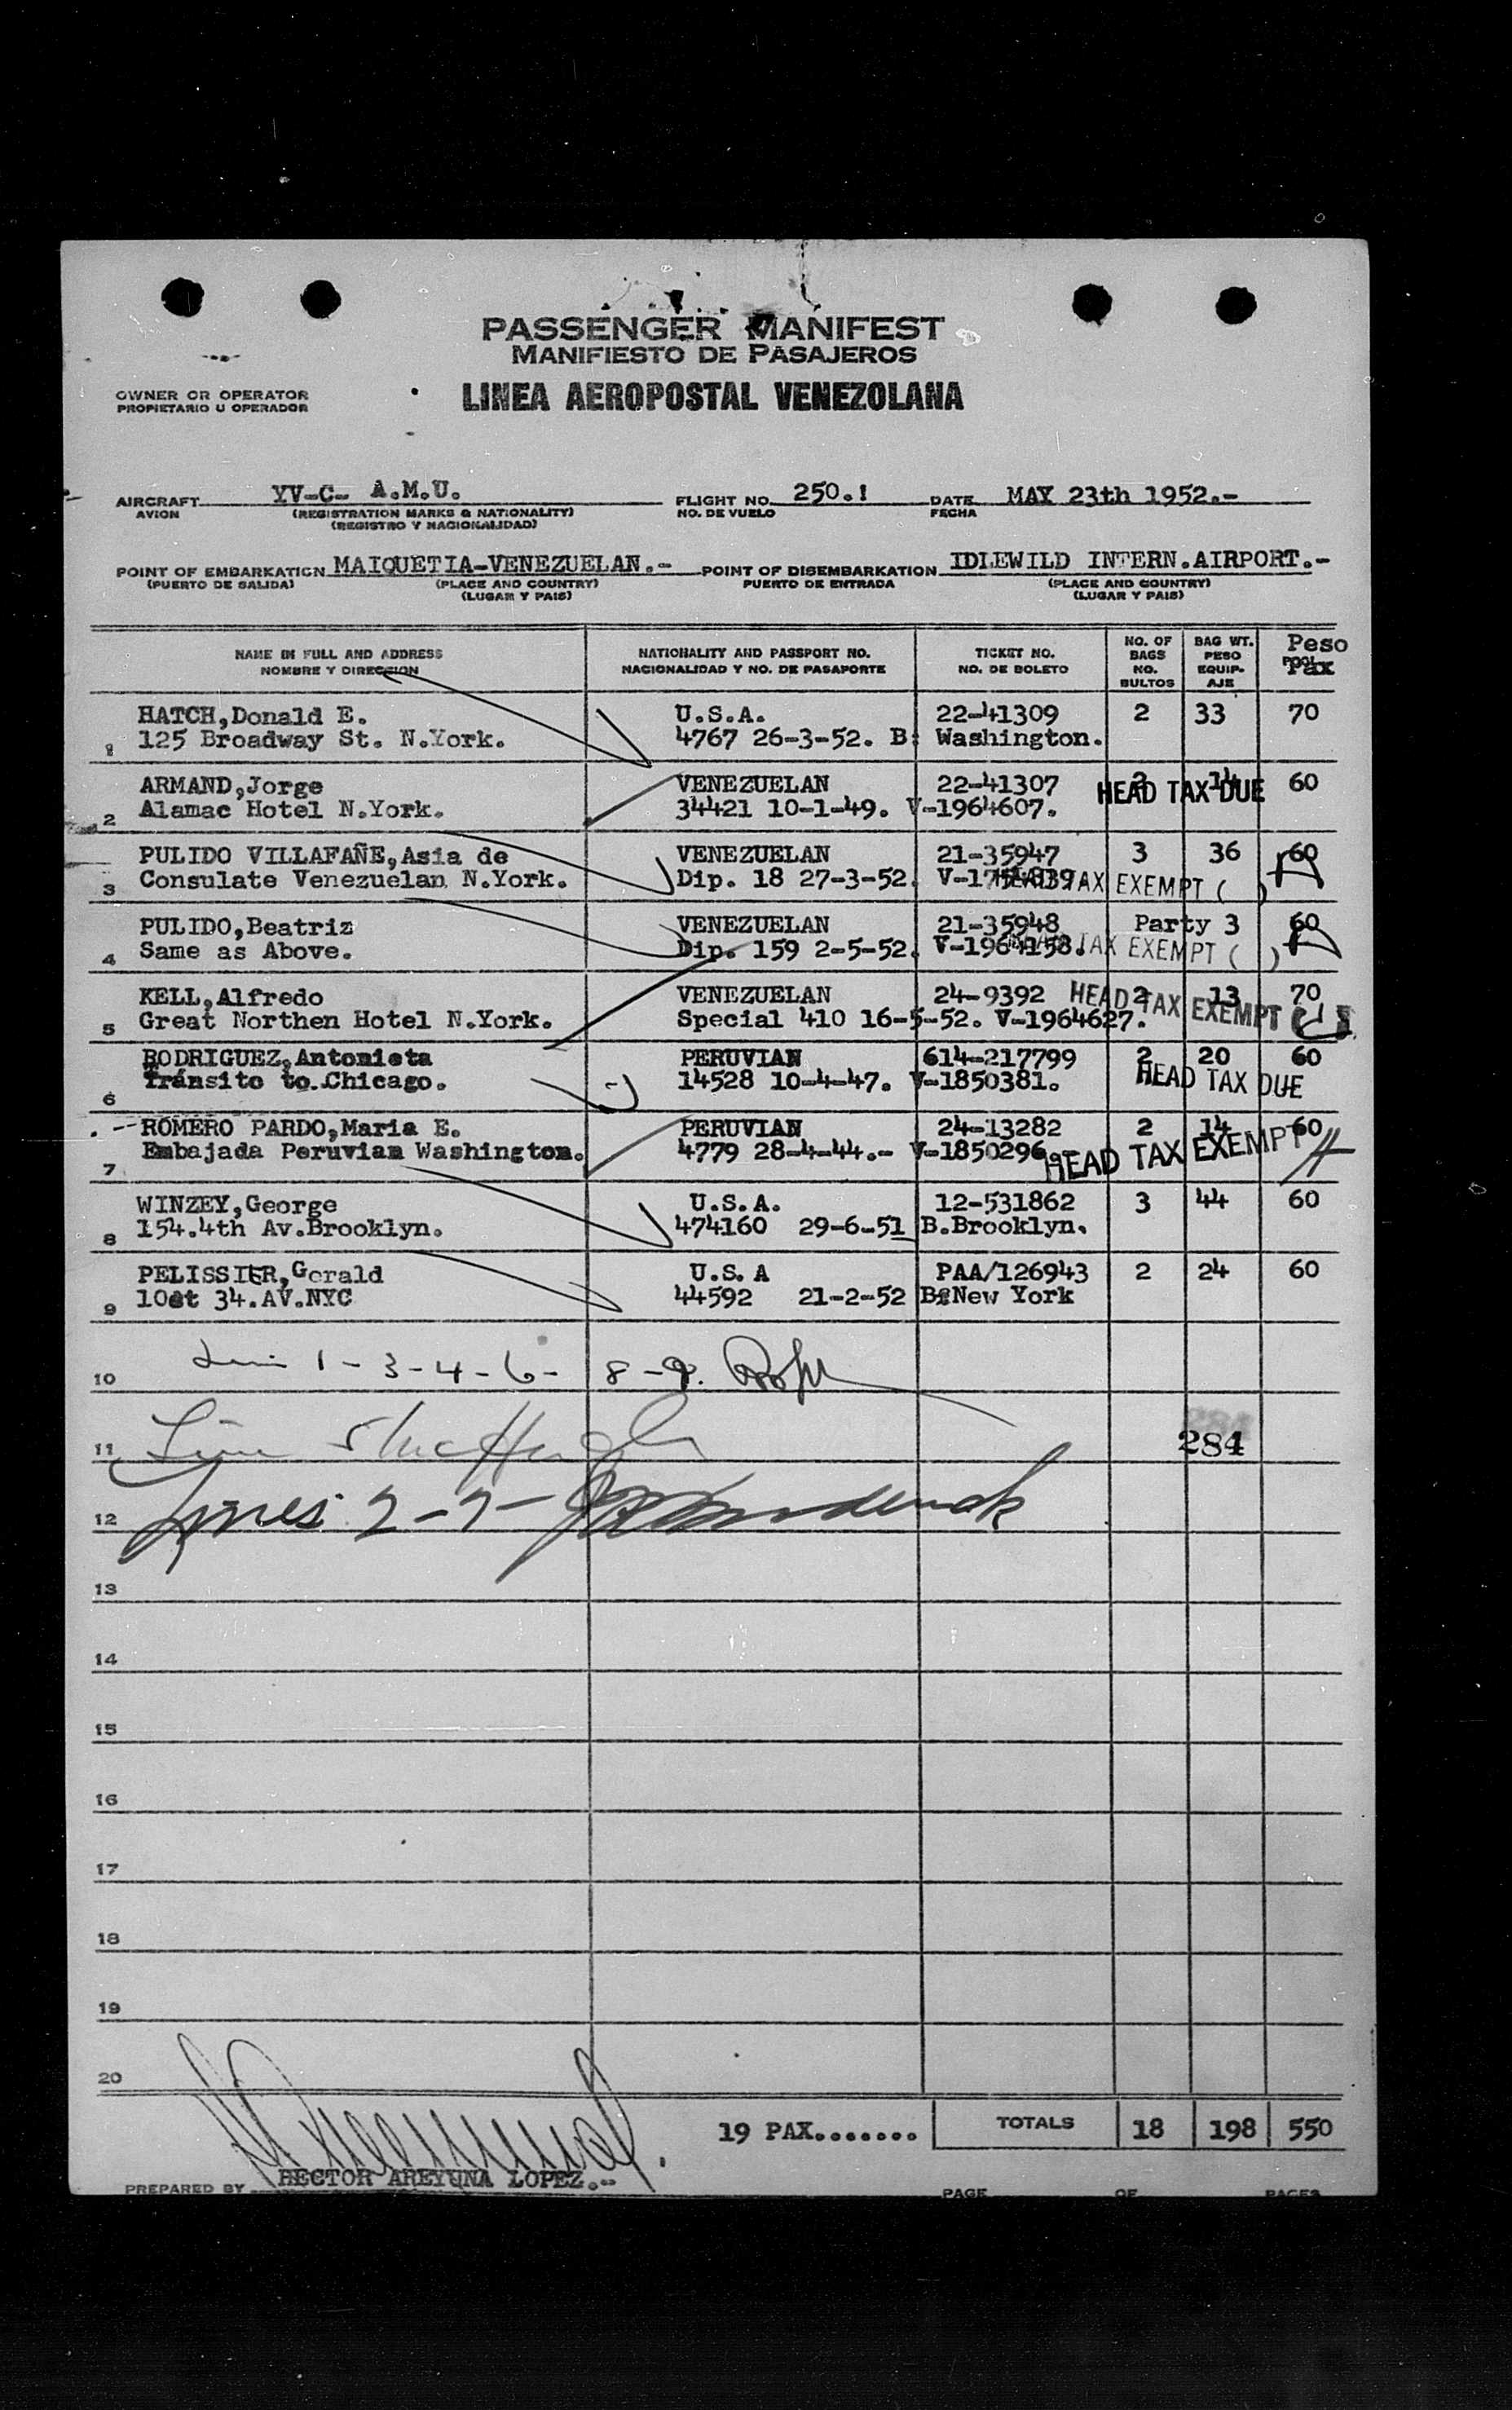 PASSENGER MANIFEST
MANIFIESTO DE PASAJEROS
OWNER OR OPERATOR
PROPIETARIO U OPERADOR
LINEA AEROPOSTAL VENEZOLANA
AIRCRAFT YV-C- A.M.U. FLIGHT NO. 250.! DATE MAY 23th 1952.-
AVION (REGISTRATION MARKS & NATIONALITY) NO. DE VUELO FECHA
(REGISTRO Y NACIONALIDAD)
POINT OF EMBARKATION MAIQUETIA-VENEZUELAN.- POINT OF DISEMBARKATION IDLEWILD INTERN.AIRPORT.-
(PUERTO DE SALIDA) (PLACE AND COUNTRY) PUERTO DE ENTRADA (PLACE AND COUNTRY)
(LUGAR Y PAIS) (LUGAR Y PAIS)
NAME IN FULL AND ADDRESS NATIONALITY AND PASSPORT NO. TICKET NO. NO. OF BAGS BAG WT. Peso
NOMBRE Y DIRECCION NACIONALIDAD Y NO. DE PASAPORTE NO. DE BOLETO NO. BULTOS PESO EQUIPAJE Pax
HATCH,Donald E. U.S.A. 22-41309 2 33 70
1 125 Broadway St. N.York. 4767 26-3-52. B: Washington.
ARMAND,Jorge VENEZUELAN 22-41307 2 14 60 HEAD TAX DUE
2 Alamac Hotel N.York. 34421 10-1-49. V-1964607.
PULIDO VILLAFAÑE,Asia de VENEZUELAN 21-35947 3 36 60
3 Consulate Venezuelan N.York. Dip. 18 27-3-52. TAX EXEMPT ( )
PULIDO,Beatriz VENEZUELAN 21-35948 Party 3 60
4 Same as Above. Dip. 159 2-5-52. V-1964158. TAX EXEMPT ( )
KELL,Alfredo VENEZUELAN 24-9392 2 13 70 HEAD TAX EXEMPT (
5 Great Northen Hotel N.York. Special 410 16-5-52. V-1964627.
RODRIGUEZ,Antonieta PERUVIAN 614-217799 2 20 60
6 Tránsito to.Chicago. 14528 10-4-47. V-1850381. HEAD TAX DUE
ROMERO PARDO,Maria E. PERUVIAN 24-13282 2 14 60
7 Embajada Peruvian Washington. 4779 28-4-44.- V-1850296. HEAD TAX EXEMPT
WINZEY,George U.S.A. 12-531862 3 44 60
8 154.4th Av.Brooklyn. 474160 29-6-51 B.Brooklyn.
PELISSIER,Gerald U.S.A PAA/126943 2 24 60
9 10et 34.AV.NYC 44592 21-2-52 B:New York
10 1-3-4-6- 8-9.
11 284
12 Lines 2-7-
13
14
15
16
17
18
19
20
19 PAX....... TOTALS 18 198 550
PREPARED BY HECTOR AREYUNA LOPEZ.-- PAGE OF PAGES